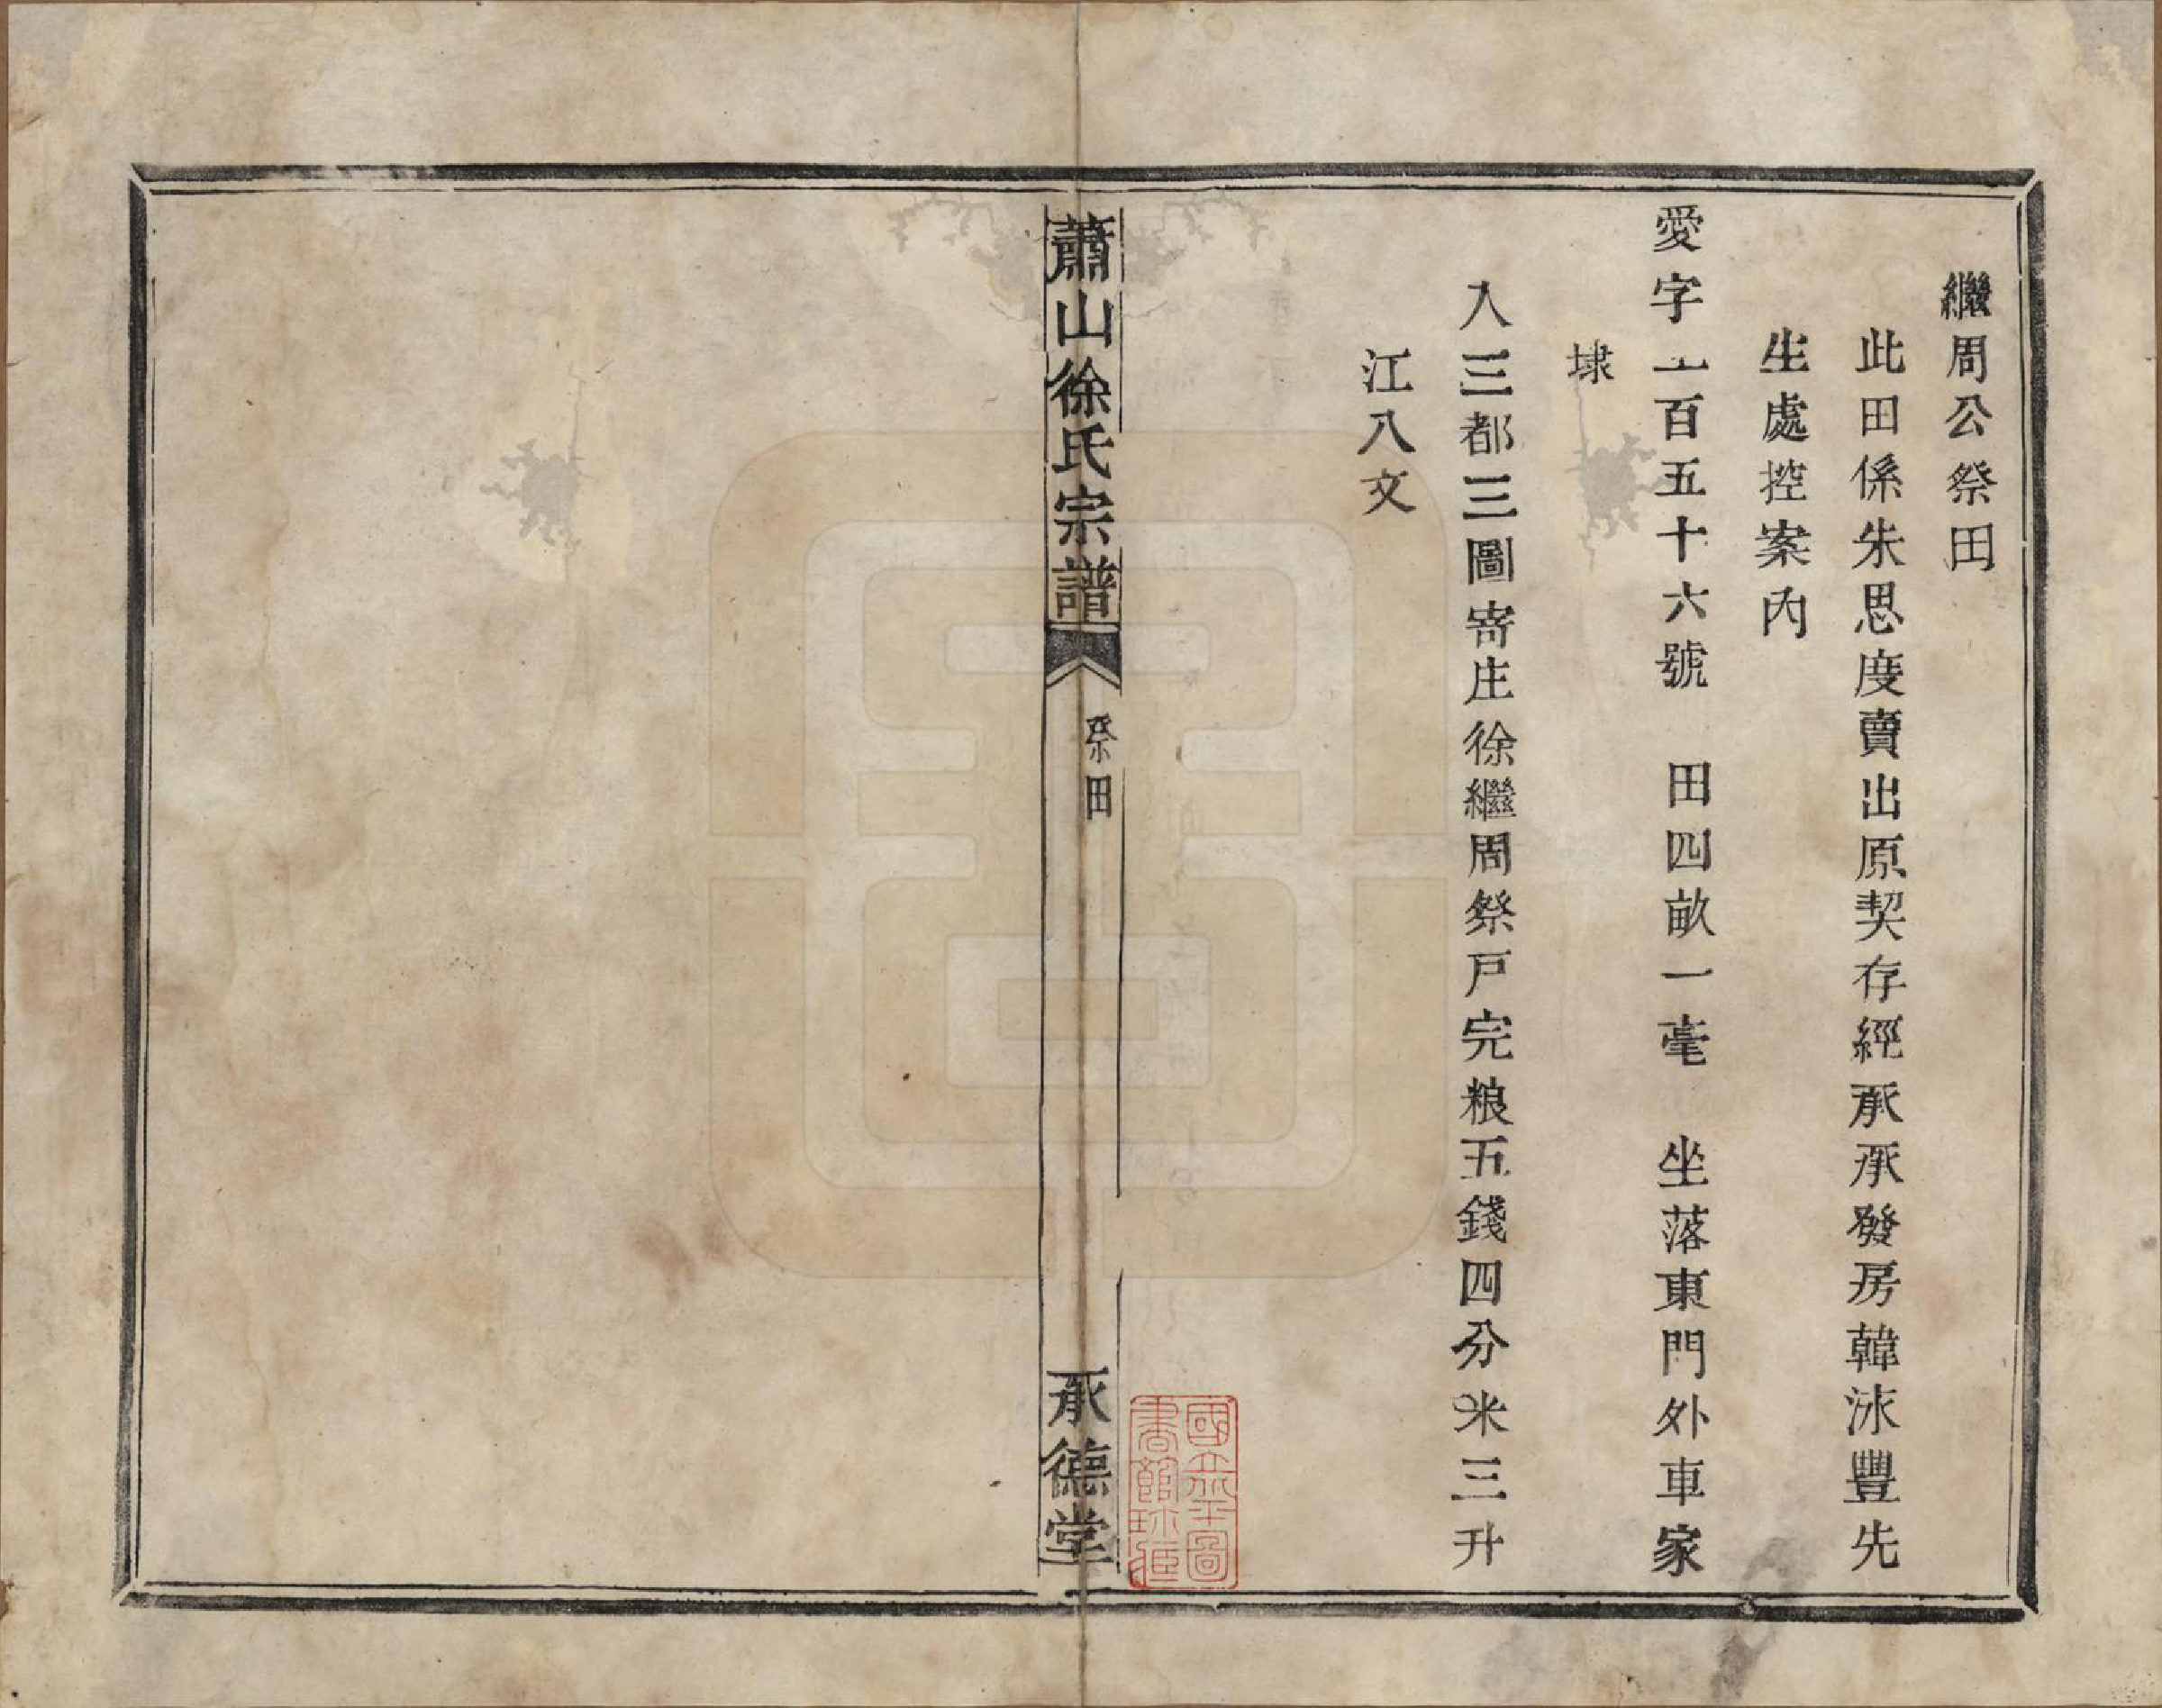 繼周公祭田
此田係朱思度賣出原契存經承承發房韓洣豐先
生處控案內
愛字一百五十六號　田四畝一毫　坐落東門外車家
埭
入三都三圖寄庄徐繼周祭戸完粮五錢四分米三升
江八文
蕭山徐氏宗譜
祭田
承德堂
國立北平圖
書館珍藏